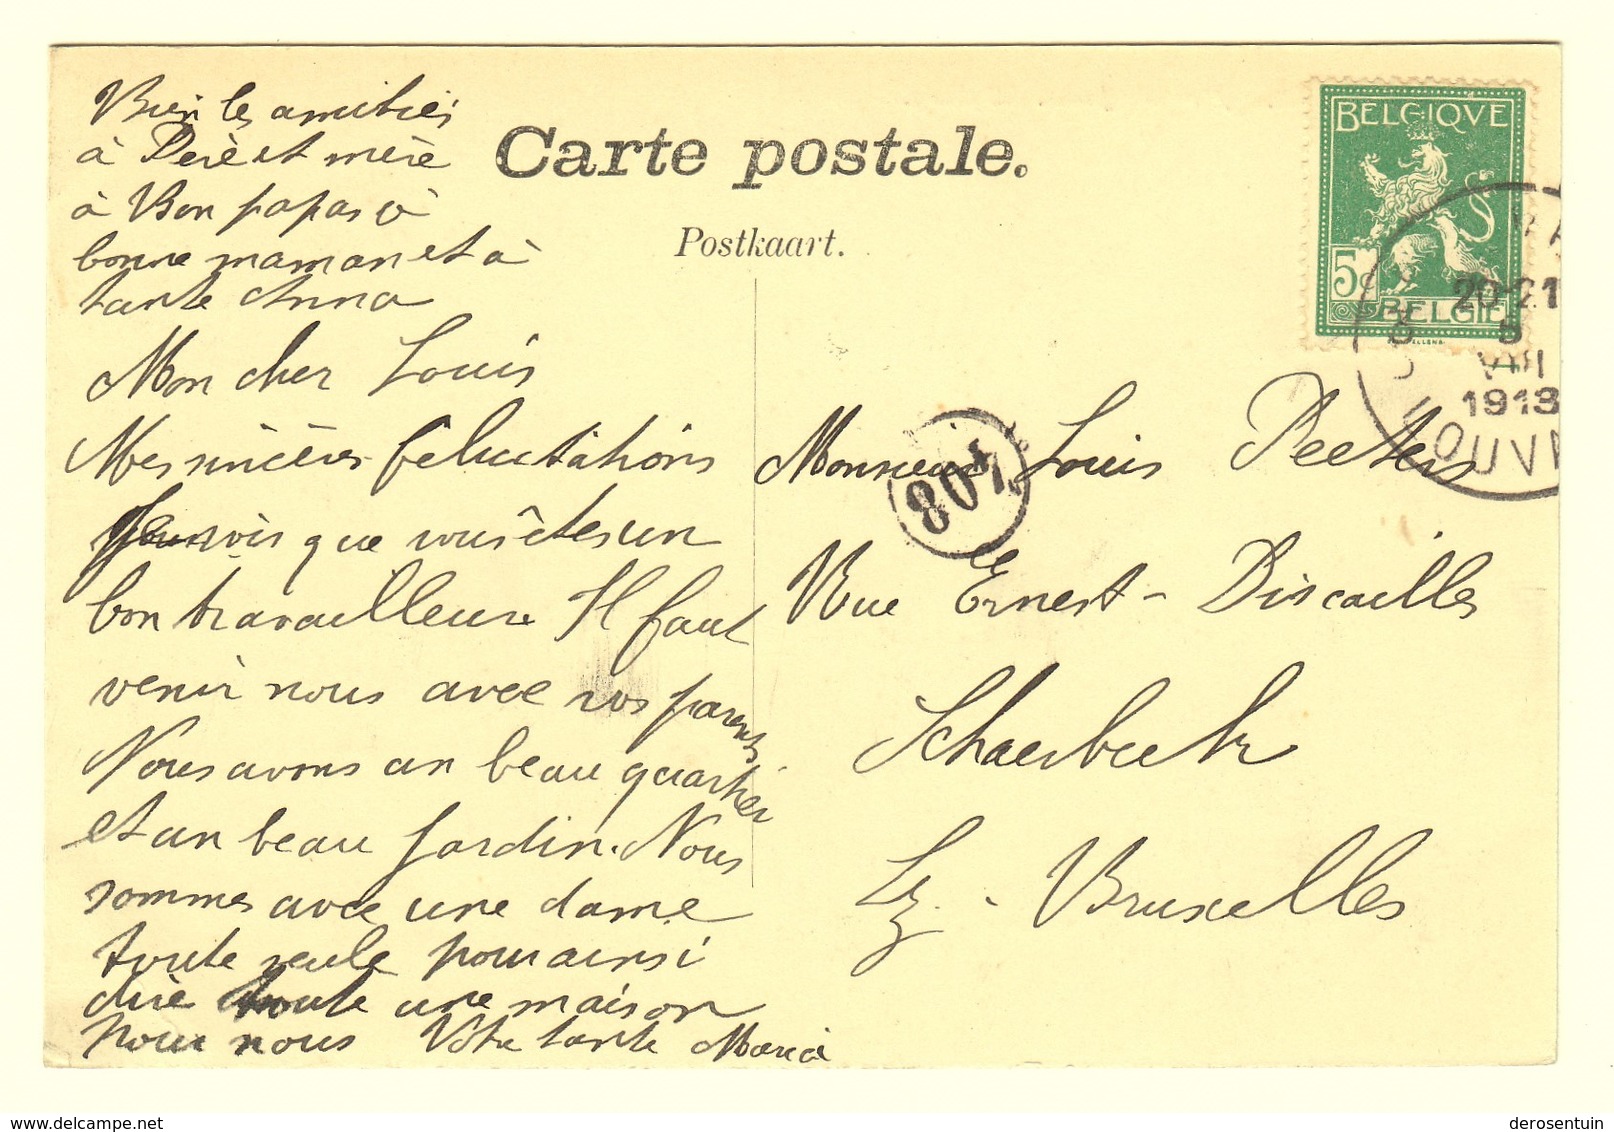 Bien les amitiés
à Père et mère
à Bon papas à
bonne maman et à
tante Anna
Mon cher Louis
Mes sincères félicitations
Je vois que vous êtes un
bon travailleure Il faut
venir nous avec vos parents
Nous avons un beau quartier
et un beau jardin. Nous
sommes avec une dame
toute seule pour ainsi
dire toute une maison
pour nous Votre tante Maria
Carte postale.
Postkaart.
BELGIQVE
5c
BELGIE
20-21
5
VIII
1913
LOUV
Monsieur Louis Peeters
Rue Ernest - Discailles
Schaerbeek
Lz. - Bruxelles
derosentuin